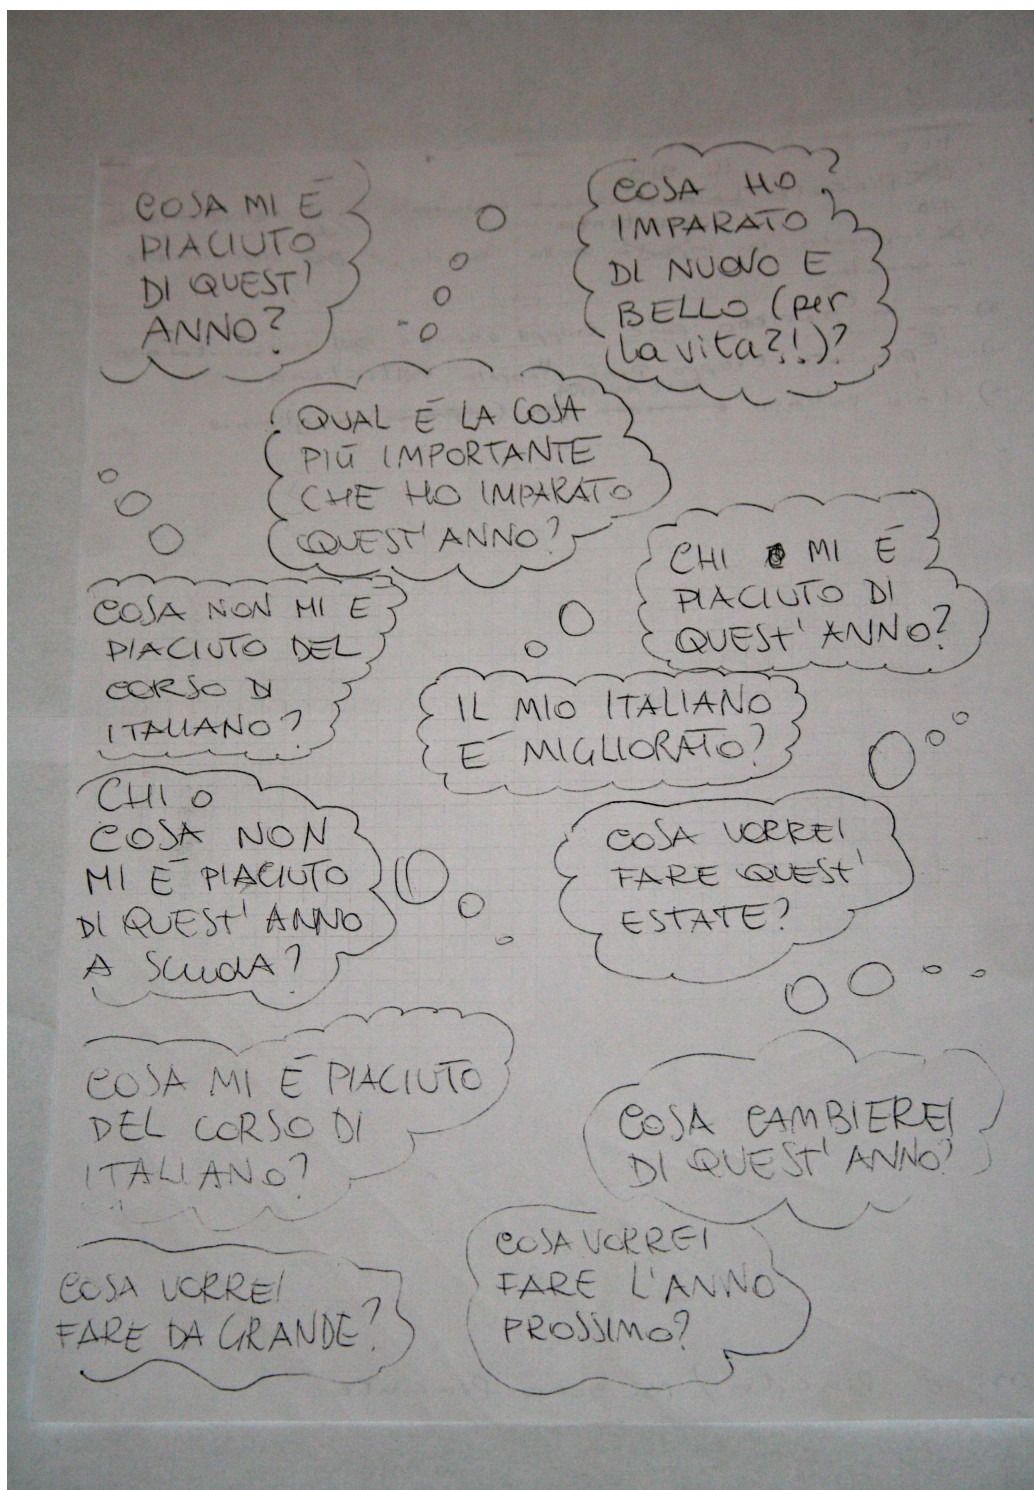 COSA MI É
PIACIUTO
DI QUEST'
ANNO?
COSA HO
IMPARATO
DI NUOVO E
BELLO (per
la vita?!)?
QUAL É LA COSA
PIÚ IMPORTANTE
CHE HO IMPARATO
QUEST' ANNO?
CHI MI É
PIACIUTO DI
QUEST' ANNO?
COSA NON MI É
PIACIUTO DEL
CORSO DI
ITALIANO?
IL MIO ITALIANO
É MIGLIORATO?
CHI O
COSA NON
MI É PIACIUTO
DI QUEST' ANNO
A SCUOLA?
COSA VORREI
FARE QUEST'
ESTATE?
COSA MI É PIACIUTO
DEL CORSO DI
ITALIANO?
COSA CAMBIEREI
DI QUEST' ANNO?
COSA VORREI
FARE DA GRANDE?
COSA VORREI
FARE L'ANNO
PROSSIMO?